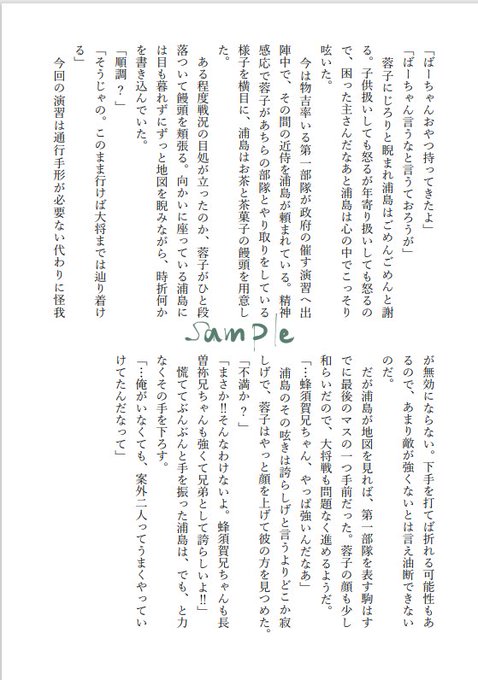 「ばーちゃんおやつ持ってきたよ」
「ばーちゃん言うなと言うておろうが」
　蓉子にじろりと睨まれ浦島はごめんごめんと謝
る。子供扱いしても怒るが年寄り扱いしても怒るの
で、困った主さんだなあと浦島は心の中でこっそり
呟いた。
　今は物吉率いる第一部隊が政府の催す演習へ出
陣中で、その間の近侍を浦島が頼まれている。精神
感応で蓉子があちらの部隊とやり取りをしている
様子を横目に、浦島はお茶と茶菓子の饅頭を用意し
た。
　ある程度戦況の目処が立ったのか、蓉子がひと段
落ついて饅頭を頬張る。向かいに座っている浦島に
は目も暮れずにずっと地図を睨みながら、時折何か
を書き込んでいた。
「順調？」
「そうじゃの。このまま行けば大将までは辿り着け
る」
　今回の演習は通行手形が必要ない代わりに怪我
Sample
が無効にならない。下手を打てば折れる可能性もあ
るので、あまり敵が強くないとは言え油断できない
のだ。
　だが浦島が地図を見れば、第一部隊を表す駒はす
でに最後のマスの一つ手前だった。蓉子の顔も少し
和らいだので、大将戦も問題なく進めるようだ。
「…蜂須賀兄ちゃん、やっぱ強いんだなあ」
　浦島のその呟きは誇らしげと言うよりどこか寂
しげで、蓉子はやっと顔を上げて彼の方を見つめた。
「不満か？」
「まさか‼そんなわけないよ。蜂須賀兄ちゃんも長
曽祢兄ちゃんも強くて兄弟として誇らしいよ‼」
　慌ててぶんぶんと手を振った浦島は、でも、と力
なくその手を下ろす。
「…俺がいなくても、案外二人ってうまくやってい
けてたんだなって」